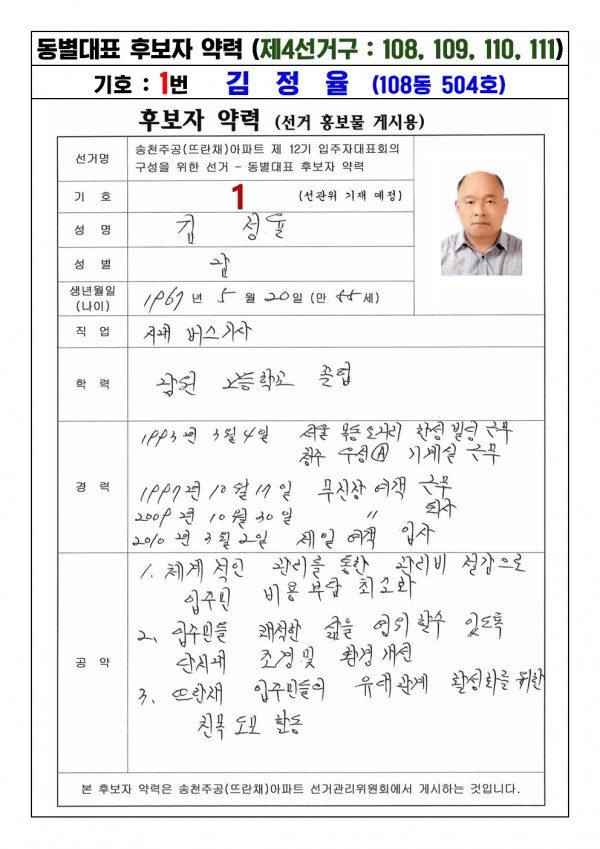 동별대표 후보자 약력 (제4선거구 : 108, 109, 110, 111)
기호 : 1번 김 정 율 (108동 504호)
후보자 약력 (선거 홍보물 게시용)
선거명
송천주공(뜨란채)아파트 제 12기 입주자대표회의
구성을 위한 선거 – 동별대표 후보자 약력
기 호
1
(선관위 기재 예정)
성 명
김 정율
성 별
남
생년월일
(나이)
1967 년 5 월 20 일 (만 55 세)
직 업
시내 버스기사
학 력
고등학교 졸업
경 력
1993년 3월 4일 서울 목동오거리 한성빌딩 근무
우성Ⓐ 기계실 근무
1997년 10월 17일 무진장 여객 근무
2009년 10월 30일 〃 퇴사
2010년 3월 2일 제일 여객 입사
공 약
1. 체계적인 관리를 통한 관리비 절감으로
입주민 비용부담 최소화
2. 입주민들 쾌적한 삶을 영위 할수 있도록
단지내 조경및 환경개선
3. 뜨란채 입주민들의 유대관계 활성화를 위한
친목도모 활동
본 후보자 약력은 송천주공(뜨란채)아파트 선거관리위원회에서 게시하는 것입니다.